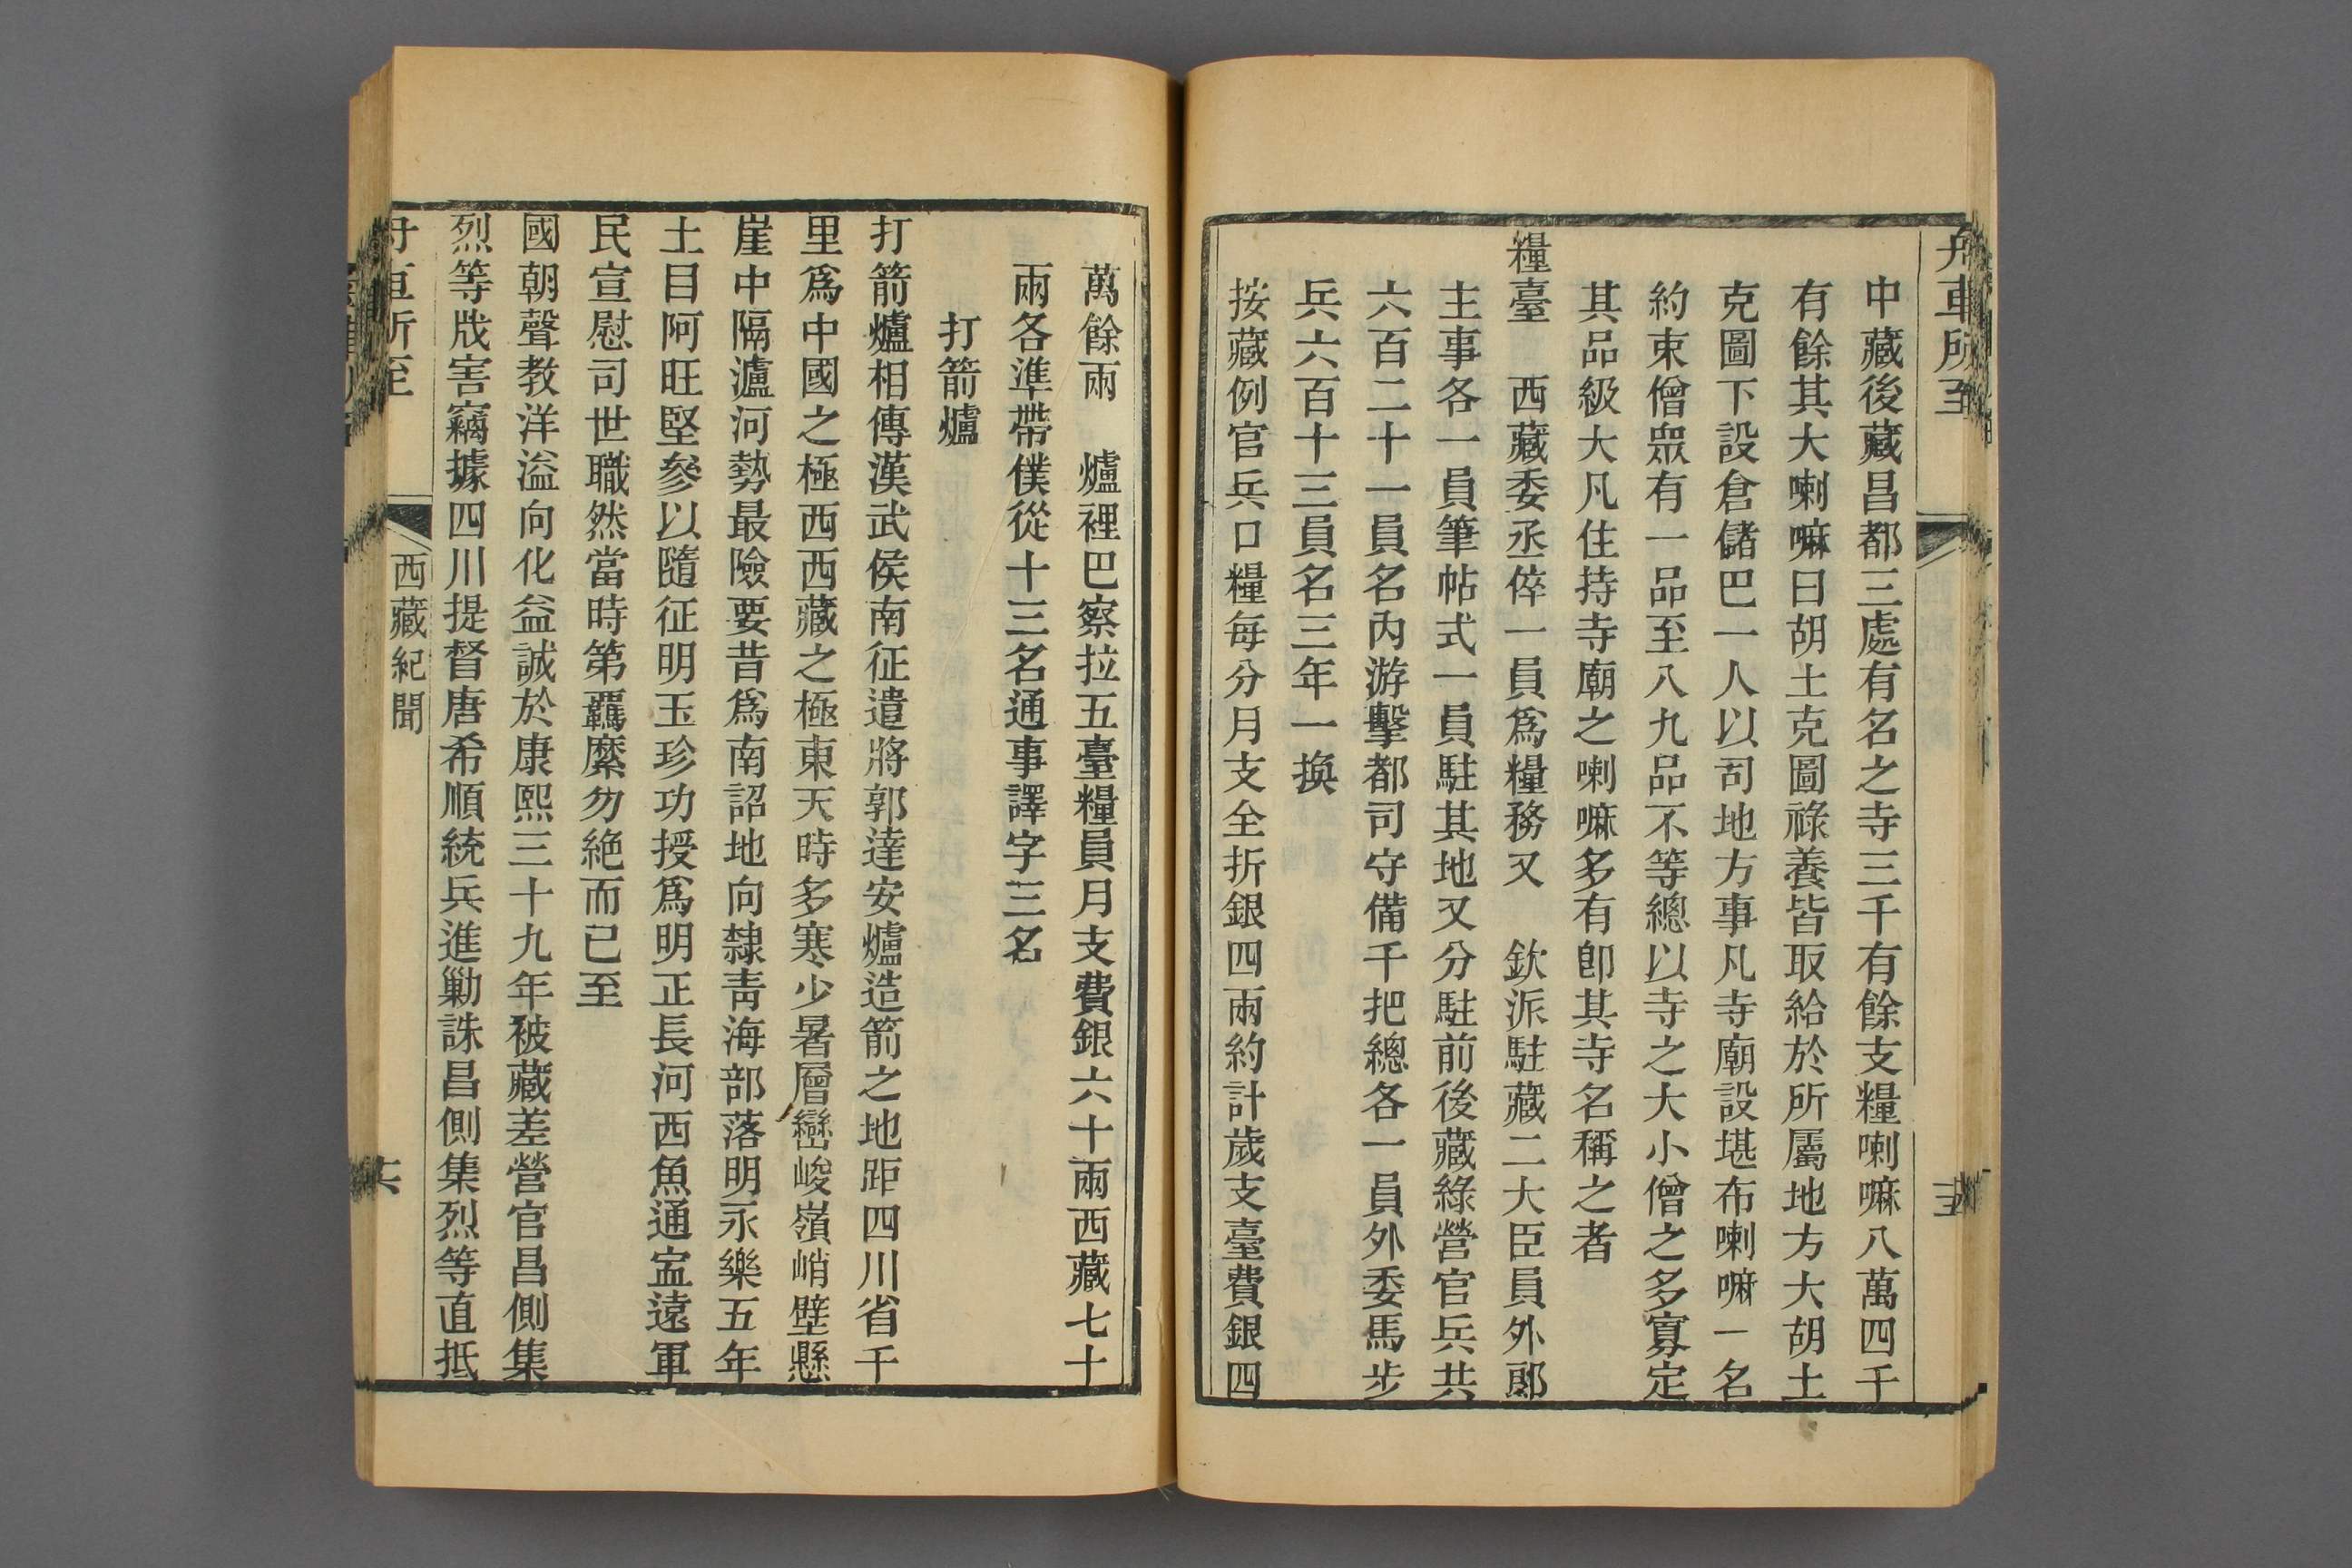 舟車所至
中藏後藏昌都三處有名之寺三千有餘支糧喇嘛八萬四千
有餘其大喇嘛曰胡土克圖祿養皆取給於所屬地方大胡土
克圖下設倉儲巴一人以司地方事凡寺廟設堪布喇嘛一名
約束僧眾有一品至八九品不等總以寺之大小僧之多寡定
其品級大凡住持寺廟之喇嘛多有卽其寺名稱之者
糧臺　西藏委丞倅一員爲糧務又　欽派駐藏二大臣員外郎
主事各一員筆帖式一員駐其地又分駐前後藏綠營官兵共
六百二十一員名內游擊都司守備千把總各一員外委馬步
兵六百十三員名三年一換
按藏例官兵口糧每分月支全折銀四兩約計歲支臺費銀四
萬餘兩　爐裡巴察拉五臺糧員月支費銀六十兩西藏七十
兩各準帶僕從十三名通事譯字三名
打箭爐
打箭爐相傳漢武侯南征遣將郭達安爐造箭之地距四川省千
里爲中國之極西西藏之極東天時多寒少暑層巒峻嶺峭壁懸
崖中隔瀘河勢最險要昔爲南詔地向隸靑海部落明永樂五年
土目阿旺堅參以隨征明玉珍功授爲明正長河西魚通寍遠軍
民宣慰司世職然當時第羈縻勿絕而已至
國朝聲教洋溢向化益誠於康熙三十九年被藏差營官昌側集
烈等戕害竊據四川提督唐希順統兵進勦誅昌側集烈等直抵
舟車所至
西藏紀聞